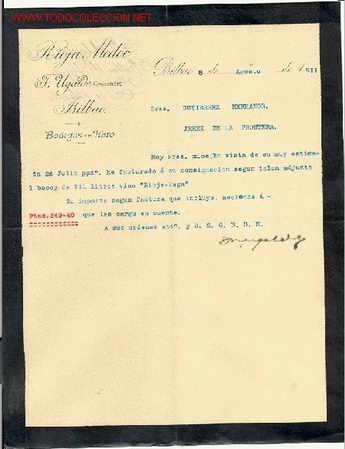 www.TODOCOLECCION.NET
Rioja Medoc
F. Ugalde
Bilbao
Bodegas en Haro
Bilbao 8 de Agosto de 1911
Sres. GUTIERREZ HERMANOS.
JEREZ DE LA FRONTERA.
Muy Sres. mios: En vista de su muy estima-
da 26 Julio ppdº. he facturado á su consignacion segun talon adjunto
1 bocoy de litros vino "Rioja-Vega"
Su importe segun factura que incluyo, asciende á -
Ptas. 349-40 que les cargo en cuenta.
á sus ordenes attº. y S. S. Q. B. S. M.